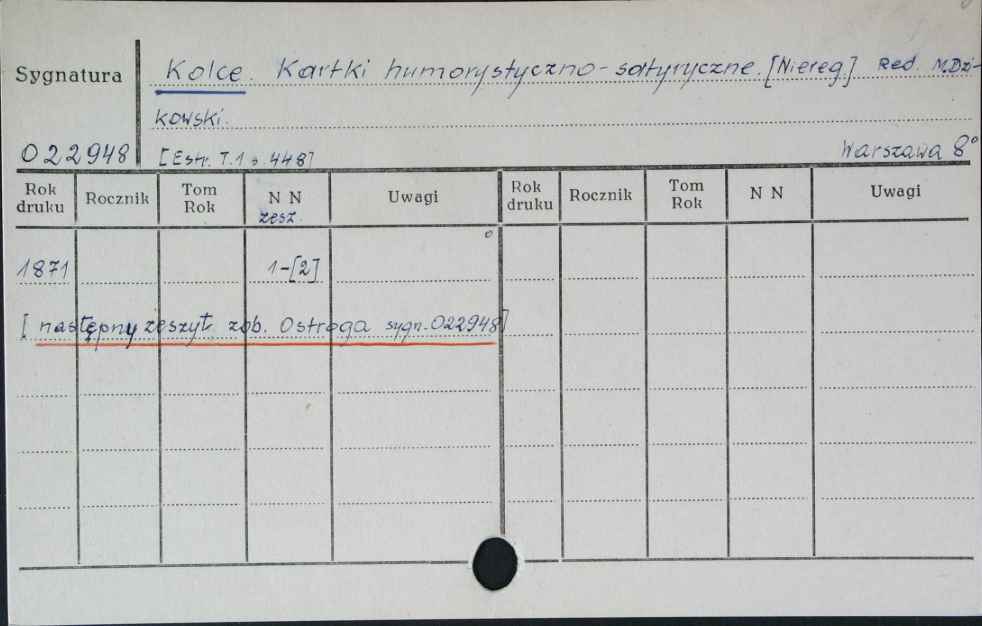 Sygnatura Kolce. Kartki humorystyczno-satyryczne. [Niereg.] Red. M.Dzi-
kowski.
022948 [Estr. T.1 s. 448] Warszawa 8°
Rok druku Rocznik Tom Rok N N zesz. Uwagi Rok druku Rocznik Tom Rok N N Uwagi
1871 1-[2]
[następny zeszyt zob. Ostroga sygn. 022948]